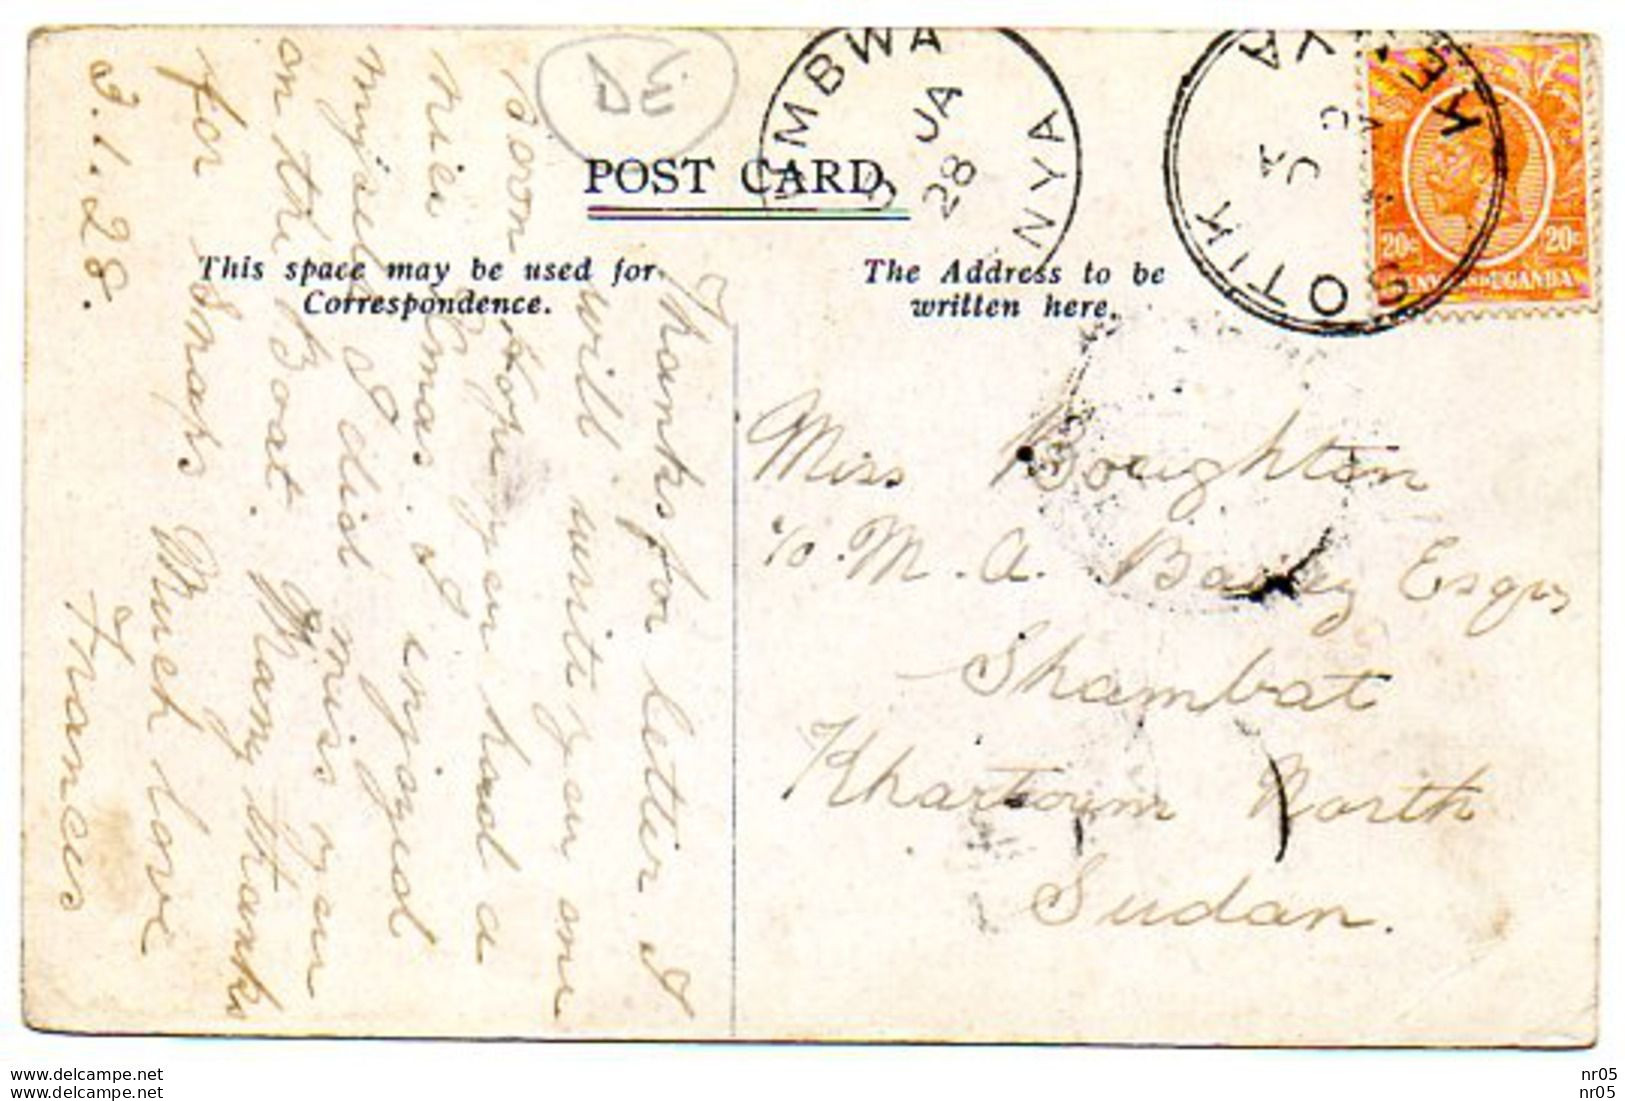 DE
POST CARD
This space may be used for
Correspondence.
The Address to be
written here.
UMBWA
JA
28
NYA
SOTIK
KE
JA
20c
20c
Thanks for letter I
will write you one
soon Hope you had a
nice Xmas. I enjoyed
myself I did miss you
on the Boat. Many thanks
for Snaps Much love
3.1.28. Frances
Miss Boughton
c/o. M. A. Esqre
Shambat
Khartoum North
Sudan.
www.delcampe.net
www.delcampe.net
nr05
nr05